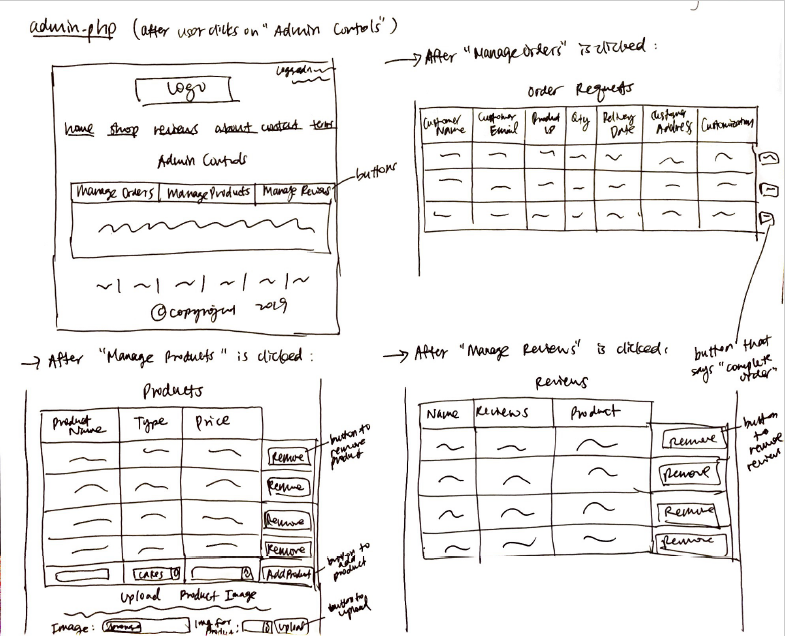 admin.php (after user clicks on "Admin Controls")
Logo
home shop reviews about contact terms
Admin Controls
Manage Orders Manage Products Manage Reviews
buttons
©copyright 2019
→ After "Manage Orders" is clicked:
Order Requests
Customer Name Customer Email Product ID Qty Delivery Date Customer Address Customization
button that
says "complete
order"
→ After "Manage Products" is clicked:
Products
Product Name Type Price
Remove
Remove
Remove
Remove
button to
remove
product
CAKES Add Product
button to
add
product
Upload Product Image
Image: Img for Product: Upload
button to
upload
→ After "Manage Reviews" is clicked:
Reviews
Name Reviews Product
Remove
Remove
Remove
Remove
button
to
remove
review